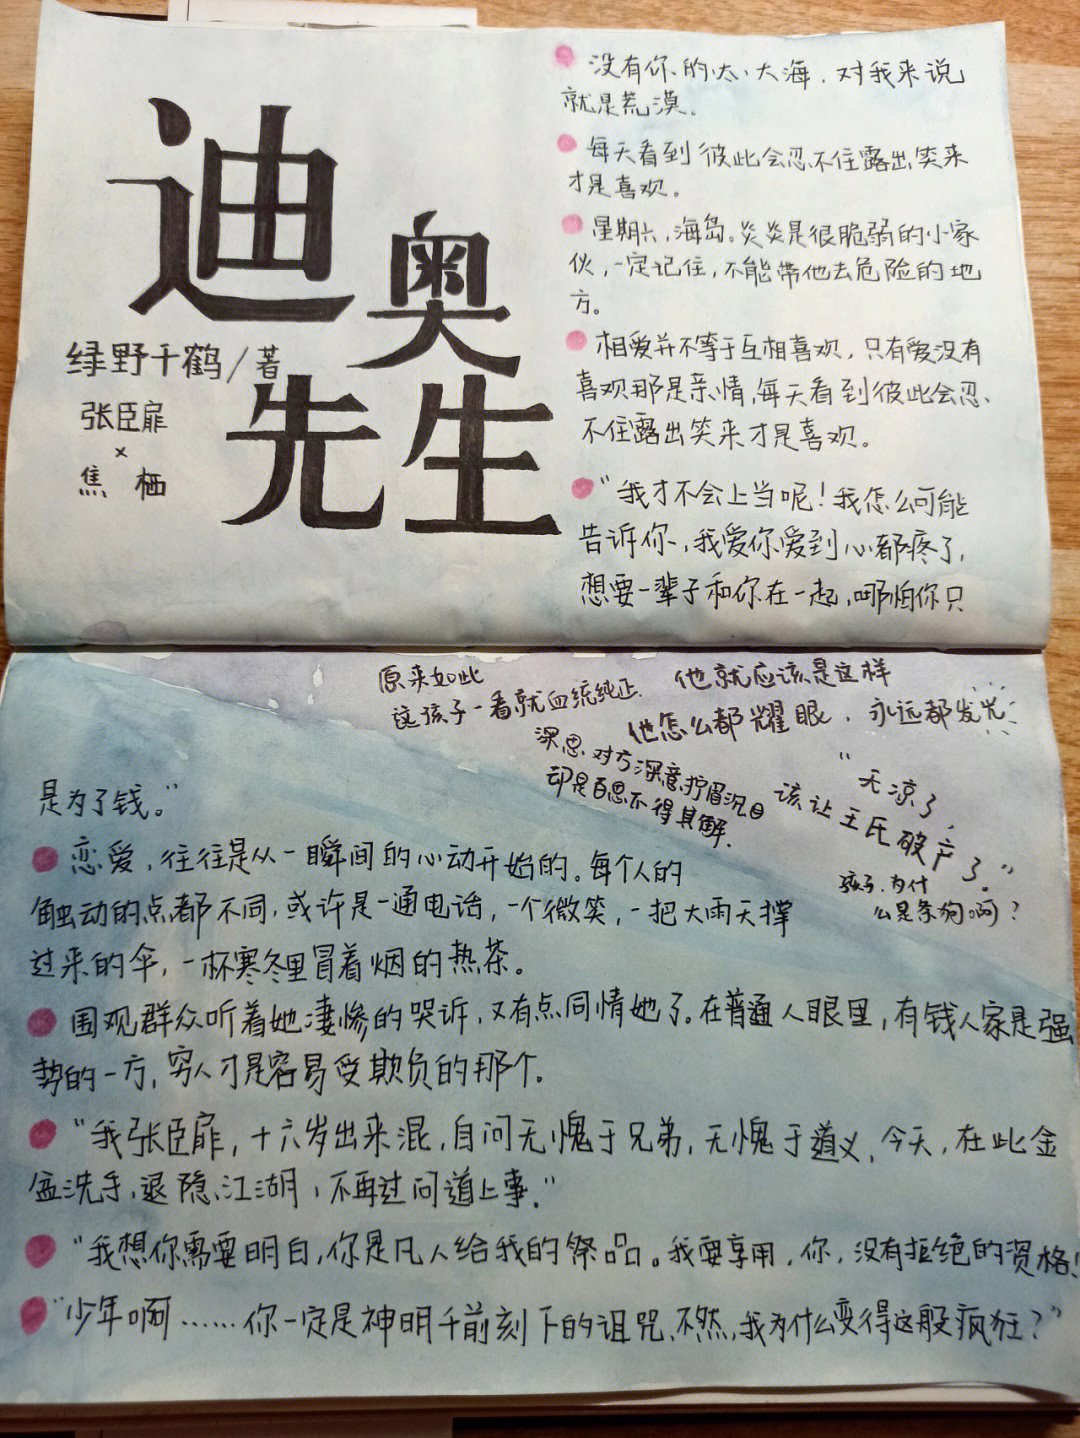 迪奥先生
绿野千鹤/著
张臣扉
×
焦栖
没有你的大海，对我来说
就是荒漠。
每天看到彼此会忍不住露出笑来
才是喜欢。
星期六，海岛。炎炎是很脆弱的小家
伙，一定记住，不能带他去危险的地
方。
相爱并不等于互相喜欢，只有爱没有
喜欢那是亲情，每天看到彼此会忍
不住露出笑来才是喜欢。
“我才不会上当呢！我怎么可能
告诉你，我爱你爱到心都疼了，
想要一辈子和你在一起，哪怕你只
原来如此
这孩子一看就血统纯正.
他就应该是这样
他怎么都耀眼，永远都发光
深思，对方深意，拧眉沉目
却是百思不得其解.
“天凉了，
该让王氏破产了。”
孩子，为什
么是条狗啊？
是为了钱。”
恋爱，往往是从一瞬间的心动开始的。每个人的
触动的点都不同，或许是一通电话，一个微笑，一把大雨天撑
过来的伞，一杯寒冬里冒着烟的热茶。
围观群众听着她凄惨的哭诉，又有点同情她了。在普通人眼里，有钱人家是强
势的一方，穷人才是容易受欺负的那个。
“我张臣扉，十六岁出来混，自问无愧于兄弟，无愧于道义，今天，在此金
盆洗手，退隐江湖，不再过问道上事。”
“我想你需要明白，你是凡人给我的祭品。我要享用，你，没有拒绝的资格！
“少年啊……你一定是神明千前刻下的诅咒，不然，我为什么变得这般疯狂？”